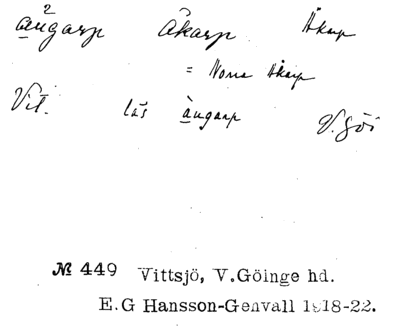 a̲ŭ²garp Åkarp Åkarp
= Norra Åkarp
Vit. läs à̲ugarp V. Göi
№ 449 Vittsjö, V.Göinge hd.
E.G Hansson-Genvall 1918-22.